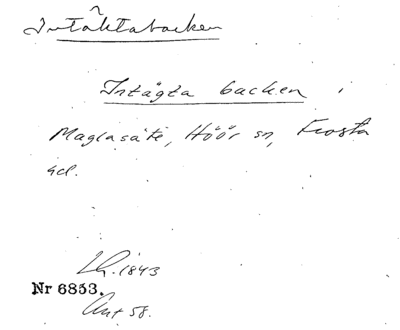 Intäktabacken
Intägta backen i
Maglasäte, Höör sn, Frosta
hd.
Lh. 1843
Nr 6853.
Ant 58.